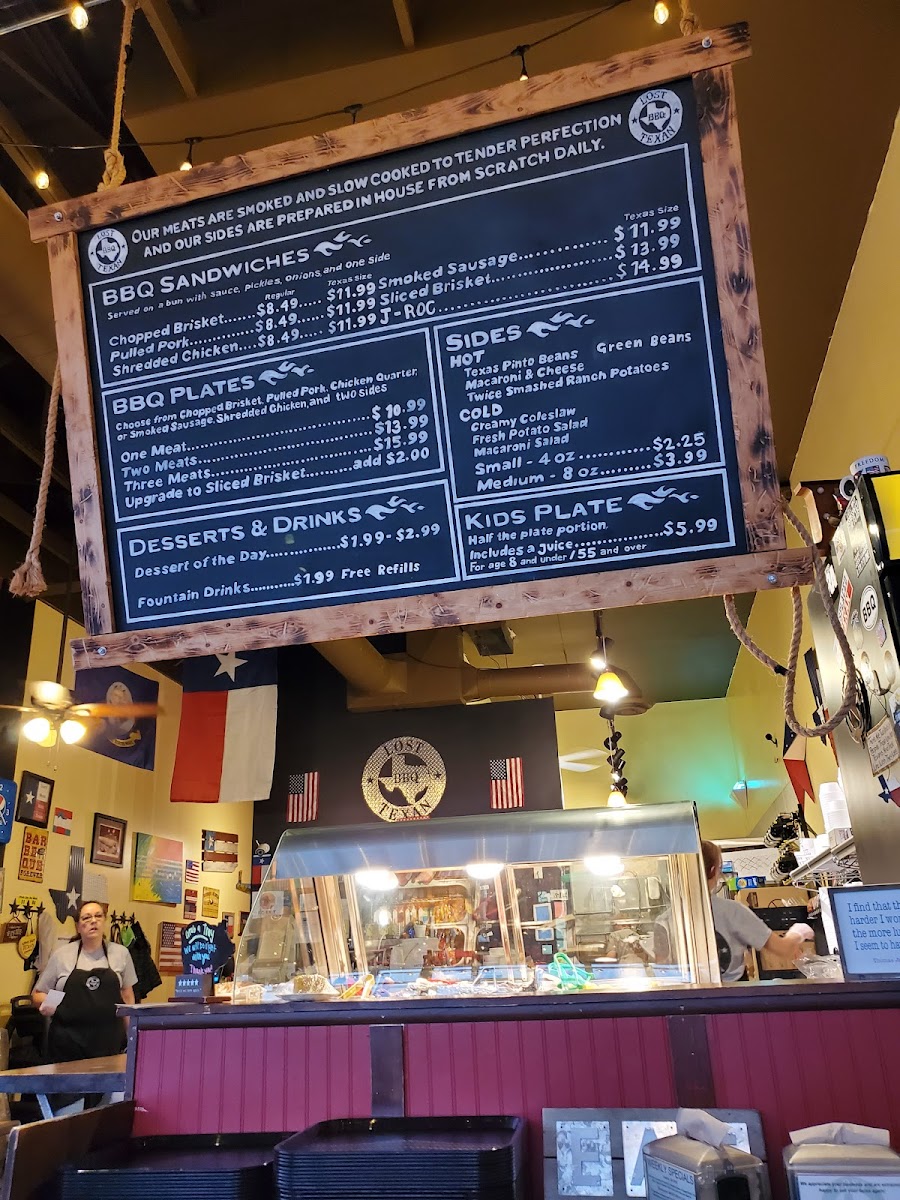 LOST BBQ TEXAN
OUR MEATS ARE SMOKED AND SLOW COOKED TO TENDER PERFECTION
AND OUR SIDES ARE PREPARED IN HOUSE FROM SCRATCH DAILY.
LOST BBQ TEXAN
BBQ SANDWICHES
Served on a bun with sauce, pickles, onions, and one side
Regular Texas Size
Chopped Brisket.......$8.49..... $11.99
Pulled Pork...............$8.49..... $11.99
Shredded Chicken....$8.49..... $11.99
Texas Size
Smoked Sausage............... $11.99
Sliced Brisket....................... $13.99
J-ROC................................... $14.99
BBQ PLATES
Choose from Chopped Brisket, Pulled Pork, Chicken Quarter,
or Smoked Sausage, Shredded Chicken, and two sides
One Meat..................................$10.99
Two Meats.................................$13.99
Three Meats..............................$15.99
Upgrade to Sliced Brisket..........add $2.00
SIDES
HOT
Texas Pinto Beans Green Beans
Macaroni & Cheese
Twice Smashed Ranch Potatoes
COLD
Creamy Coleslaw
Fresh Potato Salad
Macaroni Salad
Small - 4 oz ............$2.25
Medium - 8 oz..........$3.99
DESSERTS & DRINKS
Dessert of the Day...............$1.99 - $2.99
Fountain Drinks..........$1.99 Free Refills
KIDS PLATE
Half the plate portion,
Includes a juice...............$5.99
For age 8 and under / 55 and over
FREEDOM
BBQ
LOST BBQ TEXAN
BAR
BE
QUE
FOREVER
I find that th
harder I wo
the more lu
I seem to ha
WEEKLY SPECIALS